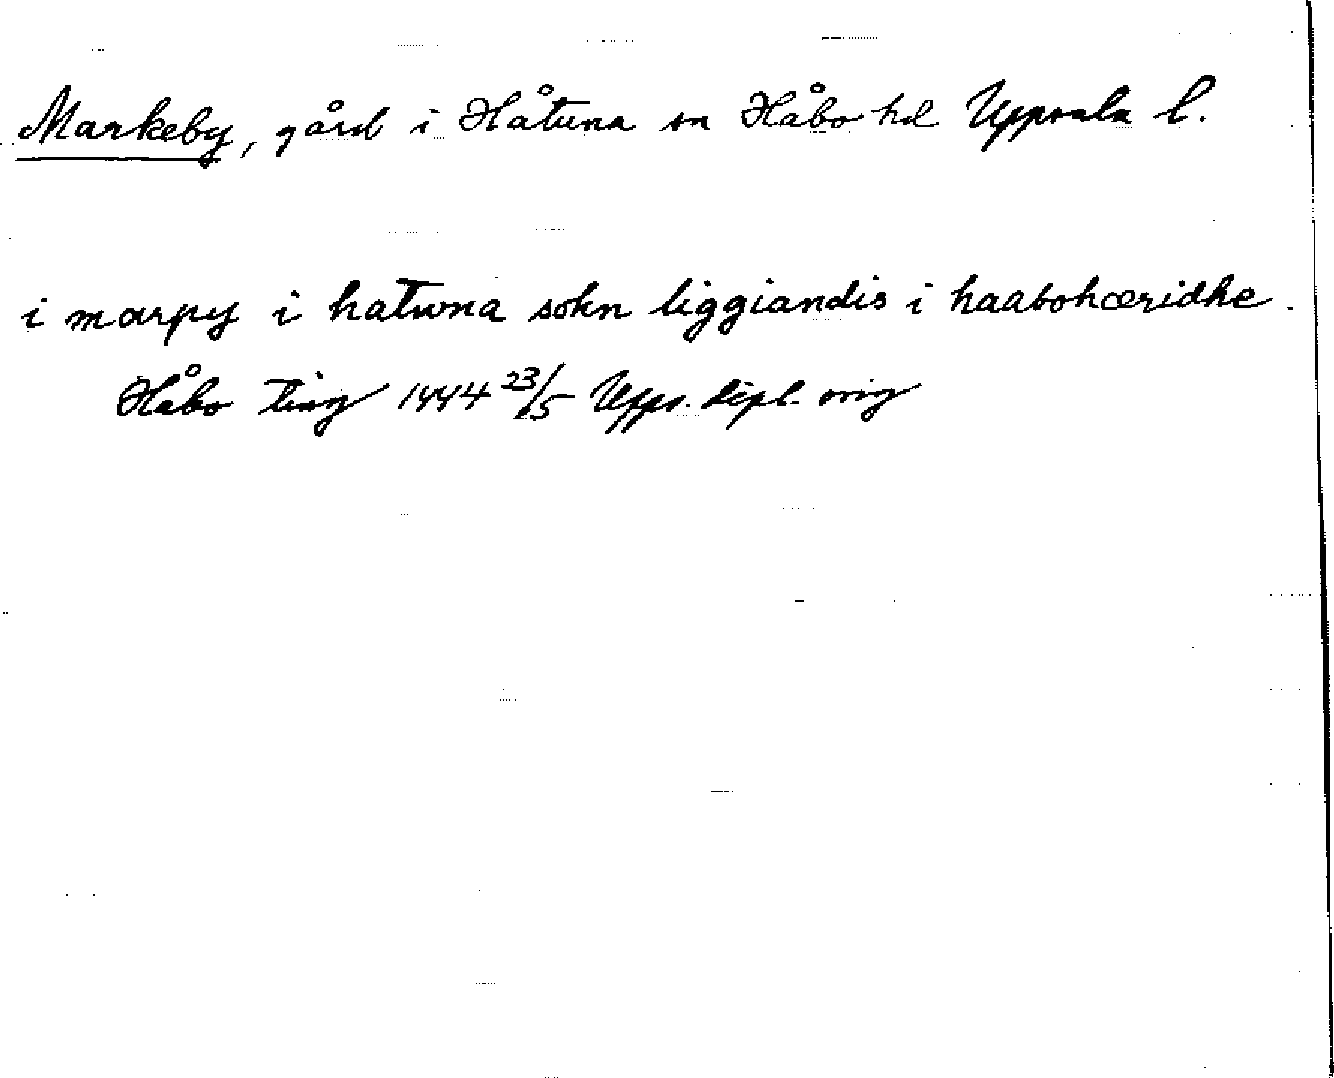 Markeby, gård i Håtuna sn Håbo hd Uppsala l.
i marpy i hatwna sokn liggiandis i haabohæridhe.
Håbo ting 1444 23/5 Upps. dipl. orig